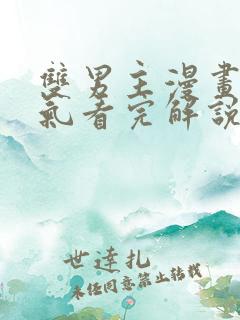 雙男主漫畫
氣看完解說
世達扎
未經同意禁止轉載